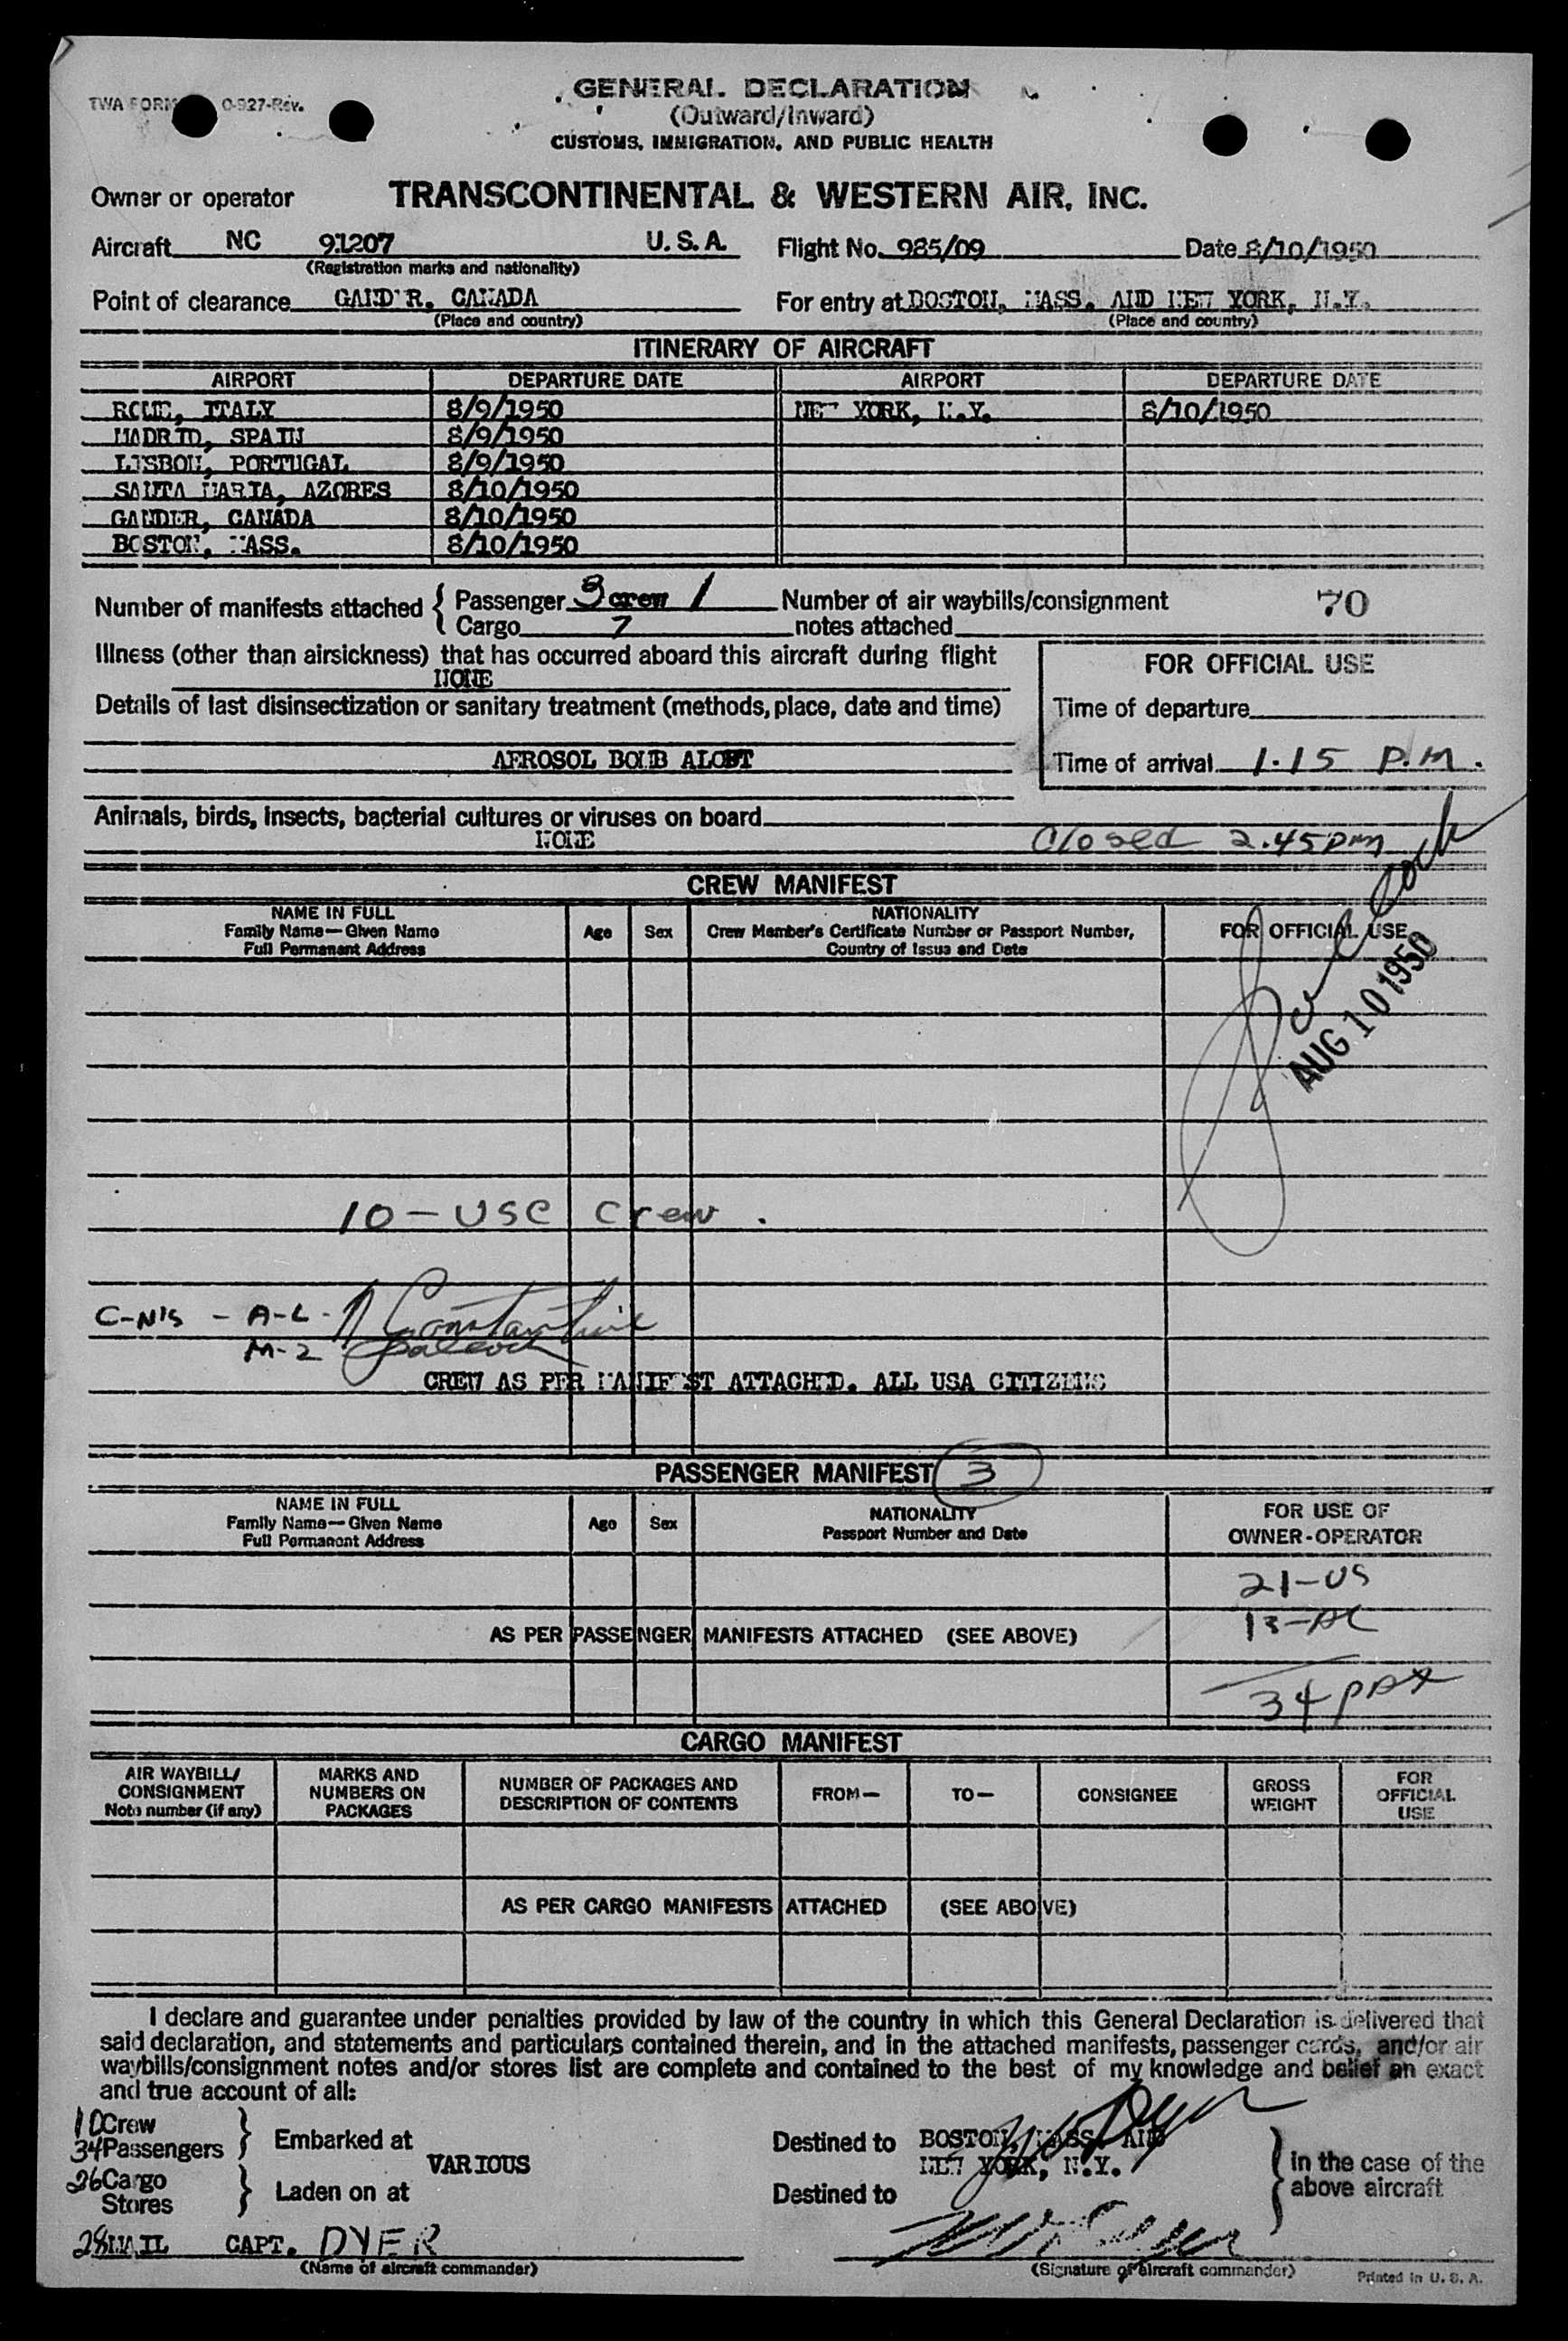 GENERAL DECLARATION
(Outward/Inward)
CUSTOMS, IMMIGRATION, AND PUBLIC HEALTH
TWA FORM O-927-Rev.
Owner or operator TRANSCONTINENTAL & WESTERN AIR, INC.
Aircraft NC 91207 U.S.A. Flight No. 985/09 Date 8/10/1950
(Registration marks and nationality)
Point of clearance GANDER, CANADA For entry at BOSTON, MASS. AND NEW YORK, N.Y.
(Place and country) (Place and country)
ITINERARY OF AIRCRAFT
AIRPORT DEPARTURE DATE AIRPORT DEPARTURE DATE
ROME, ITALY 8/9/1950 NEW YORK, N.Y. 8/10/1950
MADRID, SPAIN 8/9/1950
LISBON, PORTUGAL 8/9/1950
SANTA MARIA, AZORES 8/10/1950
GANDER, CANADA 8/10/1950
BOSTON, MASS. 8/10/1950
Number of manifests attached { Passenger 3 crew 1 Number of air waybills/consignment 70
Cargo 7 notes attached
Illness (other than airsickness) that has occurred aboard this aircraft during flight
NONE
FOR OFFICIAL USE
Details of last disinsectization or sanitary treatment (methods, place, date and time)
Time of departure
AEROSOL BOMB ALOFT
Time of arrival 1.15 P.M.
Animals, birds, insects, bacterial cultures or viruses on board
NONE
Closed 2.45 pm
CREW MANIFEST
NAME IN FULL
Family Name—Given Name
Full Permanent Address
Age Sex
NATIONALITY
Crew Member's Certificate Number or Passport Number,
Country of Issue and Date
FOR OFFICIAL USE
AUG 10 1950
10 - USC Crew.
C-N's - A-L- Constantine
M-2
CREW AS PER MANIFEST ATTACHED. ALL USA CITIZENS
PASSENGER MANIFEST 3
NAME IN FULL
Family Name—Given Name
Full Permanent Address
Age Sex
NATIONALITY
Passport Number and Date
FOR USE OF
OWNER-OPERATOR
21-US
13-AL
AS PER PASSENGER MANIFESTS ATTACHED (SEE ABOVE)
34 pax
CARGO MANIFEST
AIR WAYBILL/
CONSIGNMENT
Note number (if any)
MARKS AND
NUMBERS ON
PACKAGES
NUMBER OF PACKAGES AND
DESCRIPTION OF CONTENTS
FROM— TO— CONSIGNEE
GROSS
WEIGHT
FOR
OFFICIAL
USE
AS PER CARGO MANIFESTS ATTACHED (SEE ABOVE)
I declare and guarantee under penalties provided by law of the country in which this General Declaration is delivered that
said declaration, and statements and particulars contained therein, and in the attached manifests, passenger cards, and/or air
waybills/consignment notes and/or stores list are complete and contained to the best of my knowledge and belief an exact
and true account of all:
10 Crew
34 Passengers } Embarked at Destined to BOSTON, MASS. AND
VARIOUS NEW YORK, N.Y.
26 Cargo
Stores } Laden on at Destined to
in the case of the
above aircraft
28 MAIL CAPT. DYER
(Name of aircraft commander) (Signature of aircraft commander)
Printed in U. S. A.